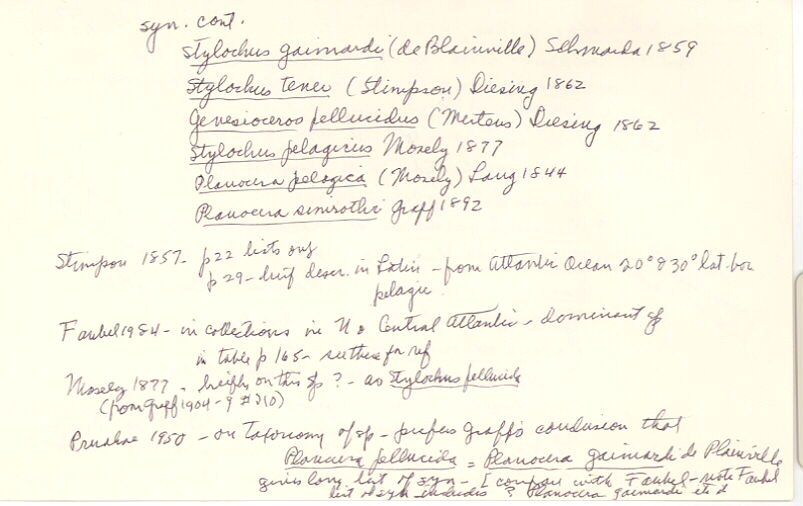 syn. cont.
Stylochus gaimardi (de Blainville) Schmarda 1859
Stylochus tener (Stimpson) Diesing 1862
Gnesioceros pellucidus (Mertens) Diesing 1862
Stylochus pelagicus Mosely 1877
Planocera pelagica (Mosely) Lang 1844
Planocera simrothi Graff 1892
Stimpson 1857 - p22 lists only
p 29 - brief descr. in Latin - from Atlantic Ocean 20° & 30° lat. bor
pelagic
Faubel 1984 - in collections in N & Central Atlantic - dominant sp
in table p 165 - see there for ref
Mosely 1877 - briefly on this sp ? - as Stylochus pellucida
(from Graff 1904 - 9 # 210)
Prudhoe 1950 - on taxonomy of sp - prefers Graff's conclusion that
Planocera pellucida = Planocera gaimardi de Plainville
gives long list of syn - I compare with Faubel - note Faubel
list of syn includes ? Planocera gaimardi etc